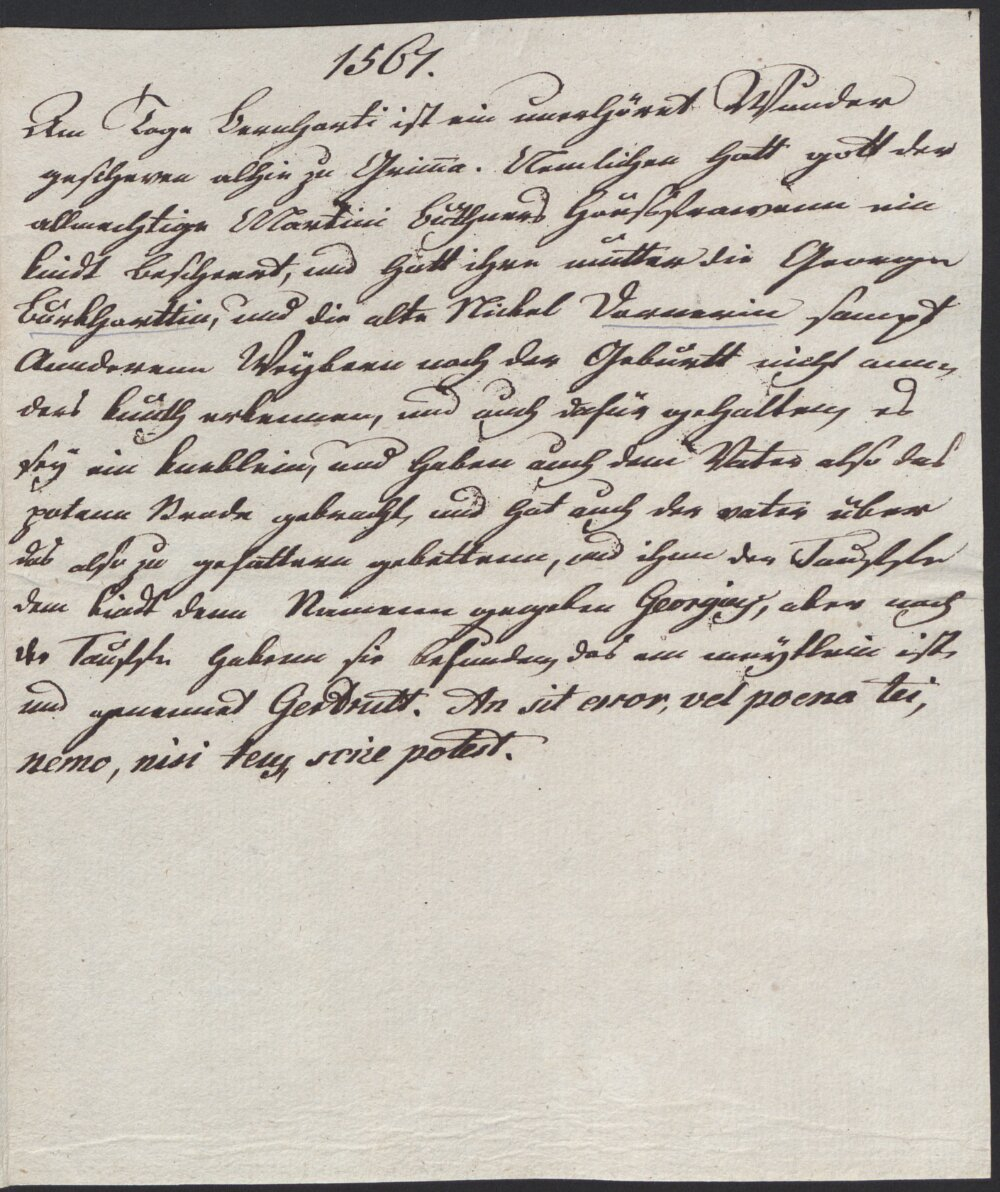 1561.
Am Tage Bernharti ist ein unerhöret Wunder
geschehen alhie zu Grim̄a. Nemlichen hatt gott der
allmechtige Martini Büthners Haußfrawenn ein
kindt bescheert, und hatt ihre mutter die Georgen
Burkharttin, und die alte Nickel Dornerin sampt
Annderenn Weÿbern nach der Geburtt nicht ann-
ders kunth erkennen, und auch dafür gehalten, es
seÿ ein kneblein, und haben auch dem Vater also das
potenn Brode gebracht, und hat auch der vater über
das also zu gefattern gebettenn, und ihm der Tauffe
dem kindt denn Namenn gegeben Georgius, aber nach
der Tauffe habenn sie befunden, das ein meÿtlein ist,
und genennet Gerdrutt. An sit error, vel poena tei,
nemo, nisi teus scire potest.